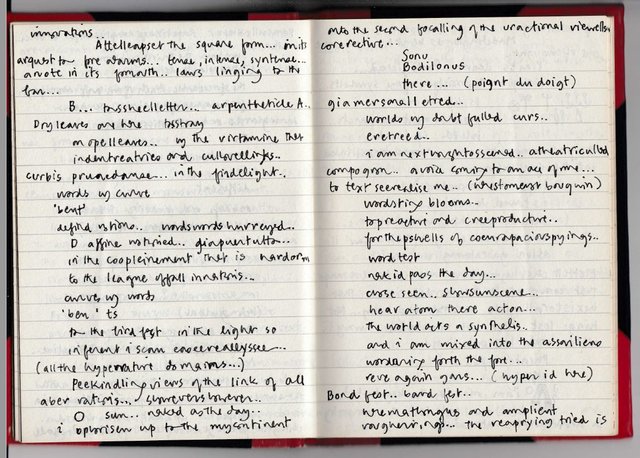 innovations...
Attelleapset the square form... in its
argust for fore adarms... tense, intense, syntense...
a note in its fomouth... laws linging to the
fan...
B... tassheelletter... arpentheticle A..
Dry leaves are here tasstray
in opelleaves.. by the virtamine thet
indentreatries and cullovellinges..
curbis prunedance... in the findelight..
words by curve
'bent'
defind notions.. wordswords hurreyed..
D affine notioned.. giapuentutton..
in the cooplejnement thet is hardom
to the league of fall innatoris...
curves by words
'ben' ts
to the bird fest in the light so
inferent i scan
(all the hypernative domains...)
Peekindling views of the link of all
aber rations..
O sun... naked as the day..
i oporisen up to the mycontinent
onto the second focalling of the uractional viewelles
corerective...
Sonu
Bodilonus
there... (poignt du doigt)
giamersonalletred...
worlds by doubt fulled curs..
eretreed..
i am nextnoughtosscened.. atheatriculled
compogron.. a voice coming to an ace of me...
to text seeresdise me.. (whestomerst bouquin)
wordsting blooms..
to preactive and creeproductive..
for the pshells of coeurapaciouspyings..
word test
nakid pass the day...
curse seen.. slowsunscene...
hear atom there acton...
the world acts a synthelis..
and i am mixed into the assailiens
wordening forth the fort...
reve again yans... (hyper id here)
Bond fest.. band fest..
wremathongues and amplient
rougheirings... the reaprying tried is